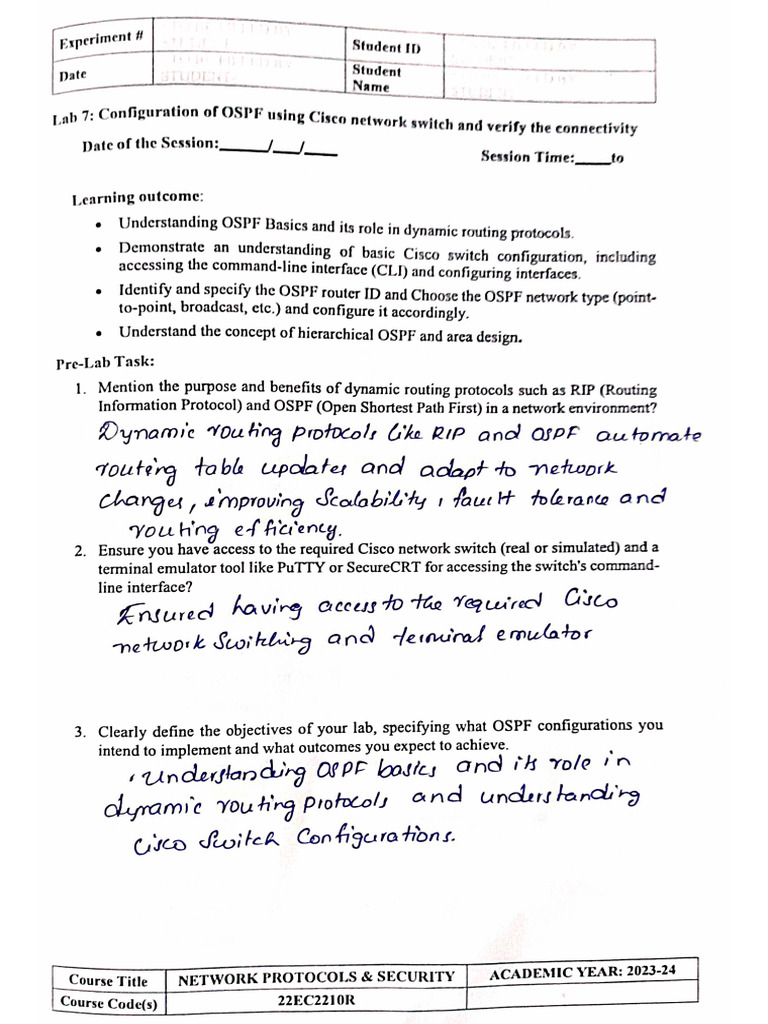 Experiment #
Student ID
Date
Student Name
Lab 7: Configuration of OSPF using Cisco network switch and verify the connectivity
Date of the Session:_____/___/____
Session Time:____to
Learning outcome:
• Understanding OSPF Basics and its role in dynamic routing protocols.
• Demonstrate an understanding of basic Cisco switch configuration, including
accessing the command-line interface (CLI) and configuring interfaces.
• Identify and specify the OSPF router ID and Choose the OSPF network type (point-
to-point, broadcast, etc.) and configure it accordingly.
• Understand the concept of hierarchical OSPF and area design.
Pre-Lab Task:
1. Mention the purpose and benefits of dynamic routing protocols such as RIP (Routing
Information Protocol) and OSPF (Open Shortest Path First) in a network environment?
Dynamic routing protocols like RIP and OSPF automate
routing table updates and adapt to network
changes, improving Scalability, fault tolerance and
routing efficiency.
2. Ensure you have access to the required Cisco network switch (real or simulated) and a
terminal emulator tool like PuTTY or SecureCRT for accessing the switch's command-
line interface?
Ensured having access to the required Cisco
network Switching and terminal emulator
3. Clearly define the objectives of your lab, specifying what OSPF configurations you
intend to implement and what outcomes you expect to achieve.
Understanding OSPF basics and its role in
dynamic routing protocols and understanding
Cisco Switch Configurations.
Course Title
NETWORK PROTOCOLS & SECURITY
ACADEMIC YEAR: 2023-24
Course Code(s)
22EC2210R